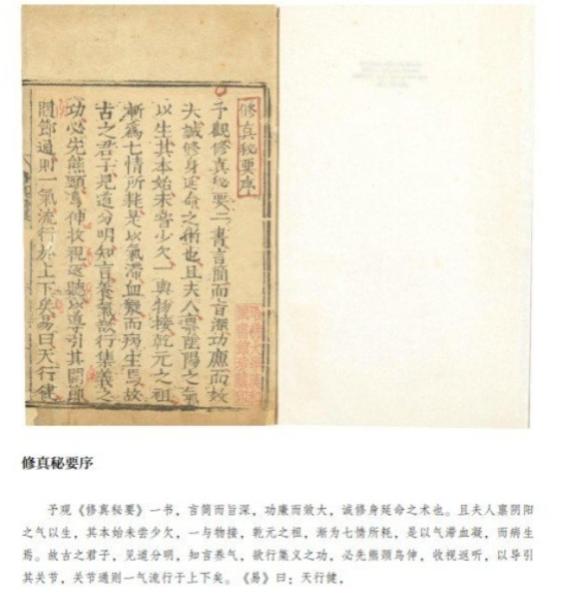 修真秘要序
予觀修真秘要一書言簡而旨深功廉而效
大誠修身延命之術也且夫人稟陰陽之氣
以生其本始未嘗少欠一與物接乾元之祖
漸爲七情所耗是以氣滯血凝而病生焉故
古之君子見道分明知言養氣欲行集義之
功必先熊頸鳥伸收視返聽以導引其關節
關節通則一氣流行於上下矣易曰天行健
修真秘要序
予观《修真秘要》一书，言简而旨深，功廉而效大，诚修身延命之术也。且夫人禀阴阳
之气以生，其本始未尝少欠，一与物接，乾元之祖，渐为七情所耗，是以气滞血凝，而病生
焉。故古之君子，见道分明，知言养气，欲行集义之功，必先熊颈鸟伸，收视返听，以导引
其关节，关节通则一气流行于上下矣。《易》曰：天行健，